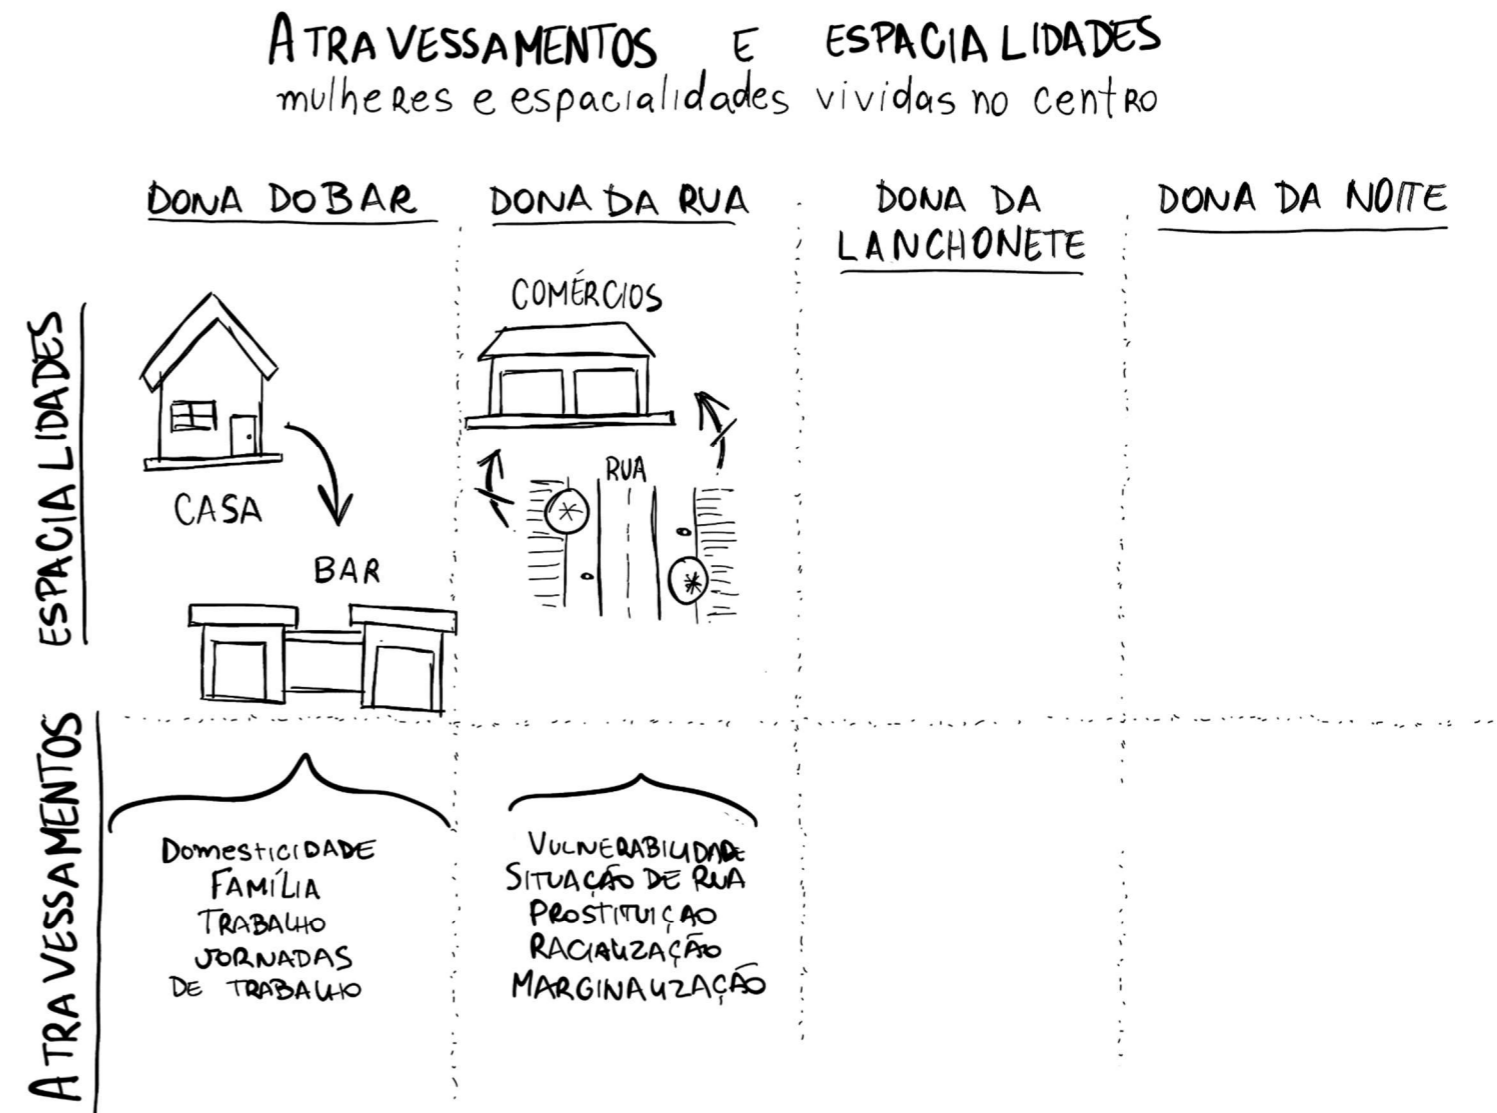 ATRAVESSAMENTOS E ESPACIALIDADES
mulheres e espacialidades vividas no centro
DONA DO BAR
DONA DA RUA
DONA DA
LANCHONETE
DONA DA NOITE
ESPACIALIDADES
CASA
BAR
COMÉRCIOS
RUA
ATRAVESSAMENTOS
DOMESTICIDADE
FAMÍLIA
TRABALHO
JORNADAS
DE TRABALHO
VULNERABILIDADE
SITUAÇÃO DE RUA
PROSTITUIÇAO
RACIALIZAÇÃO
MARGINALIZAÇÃO